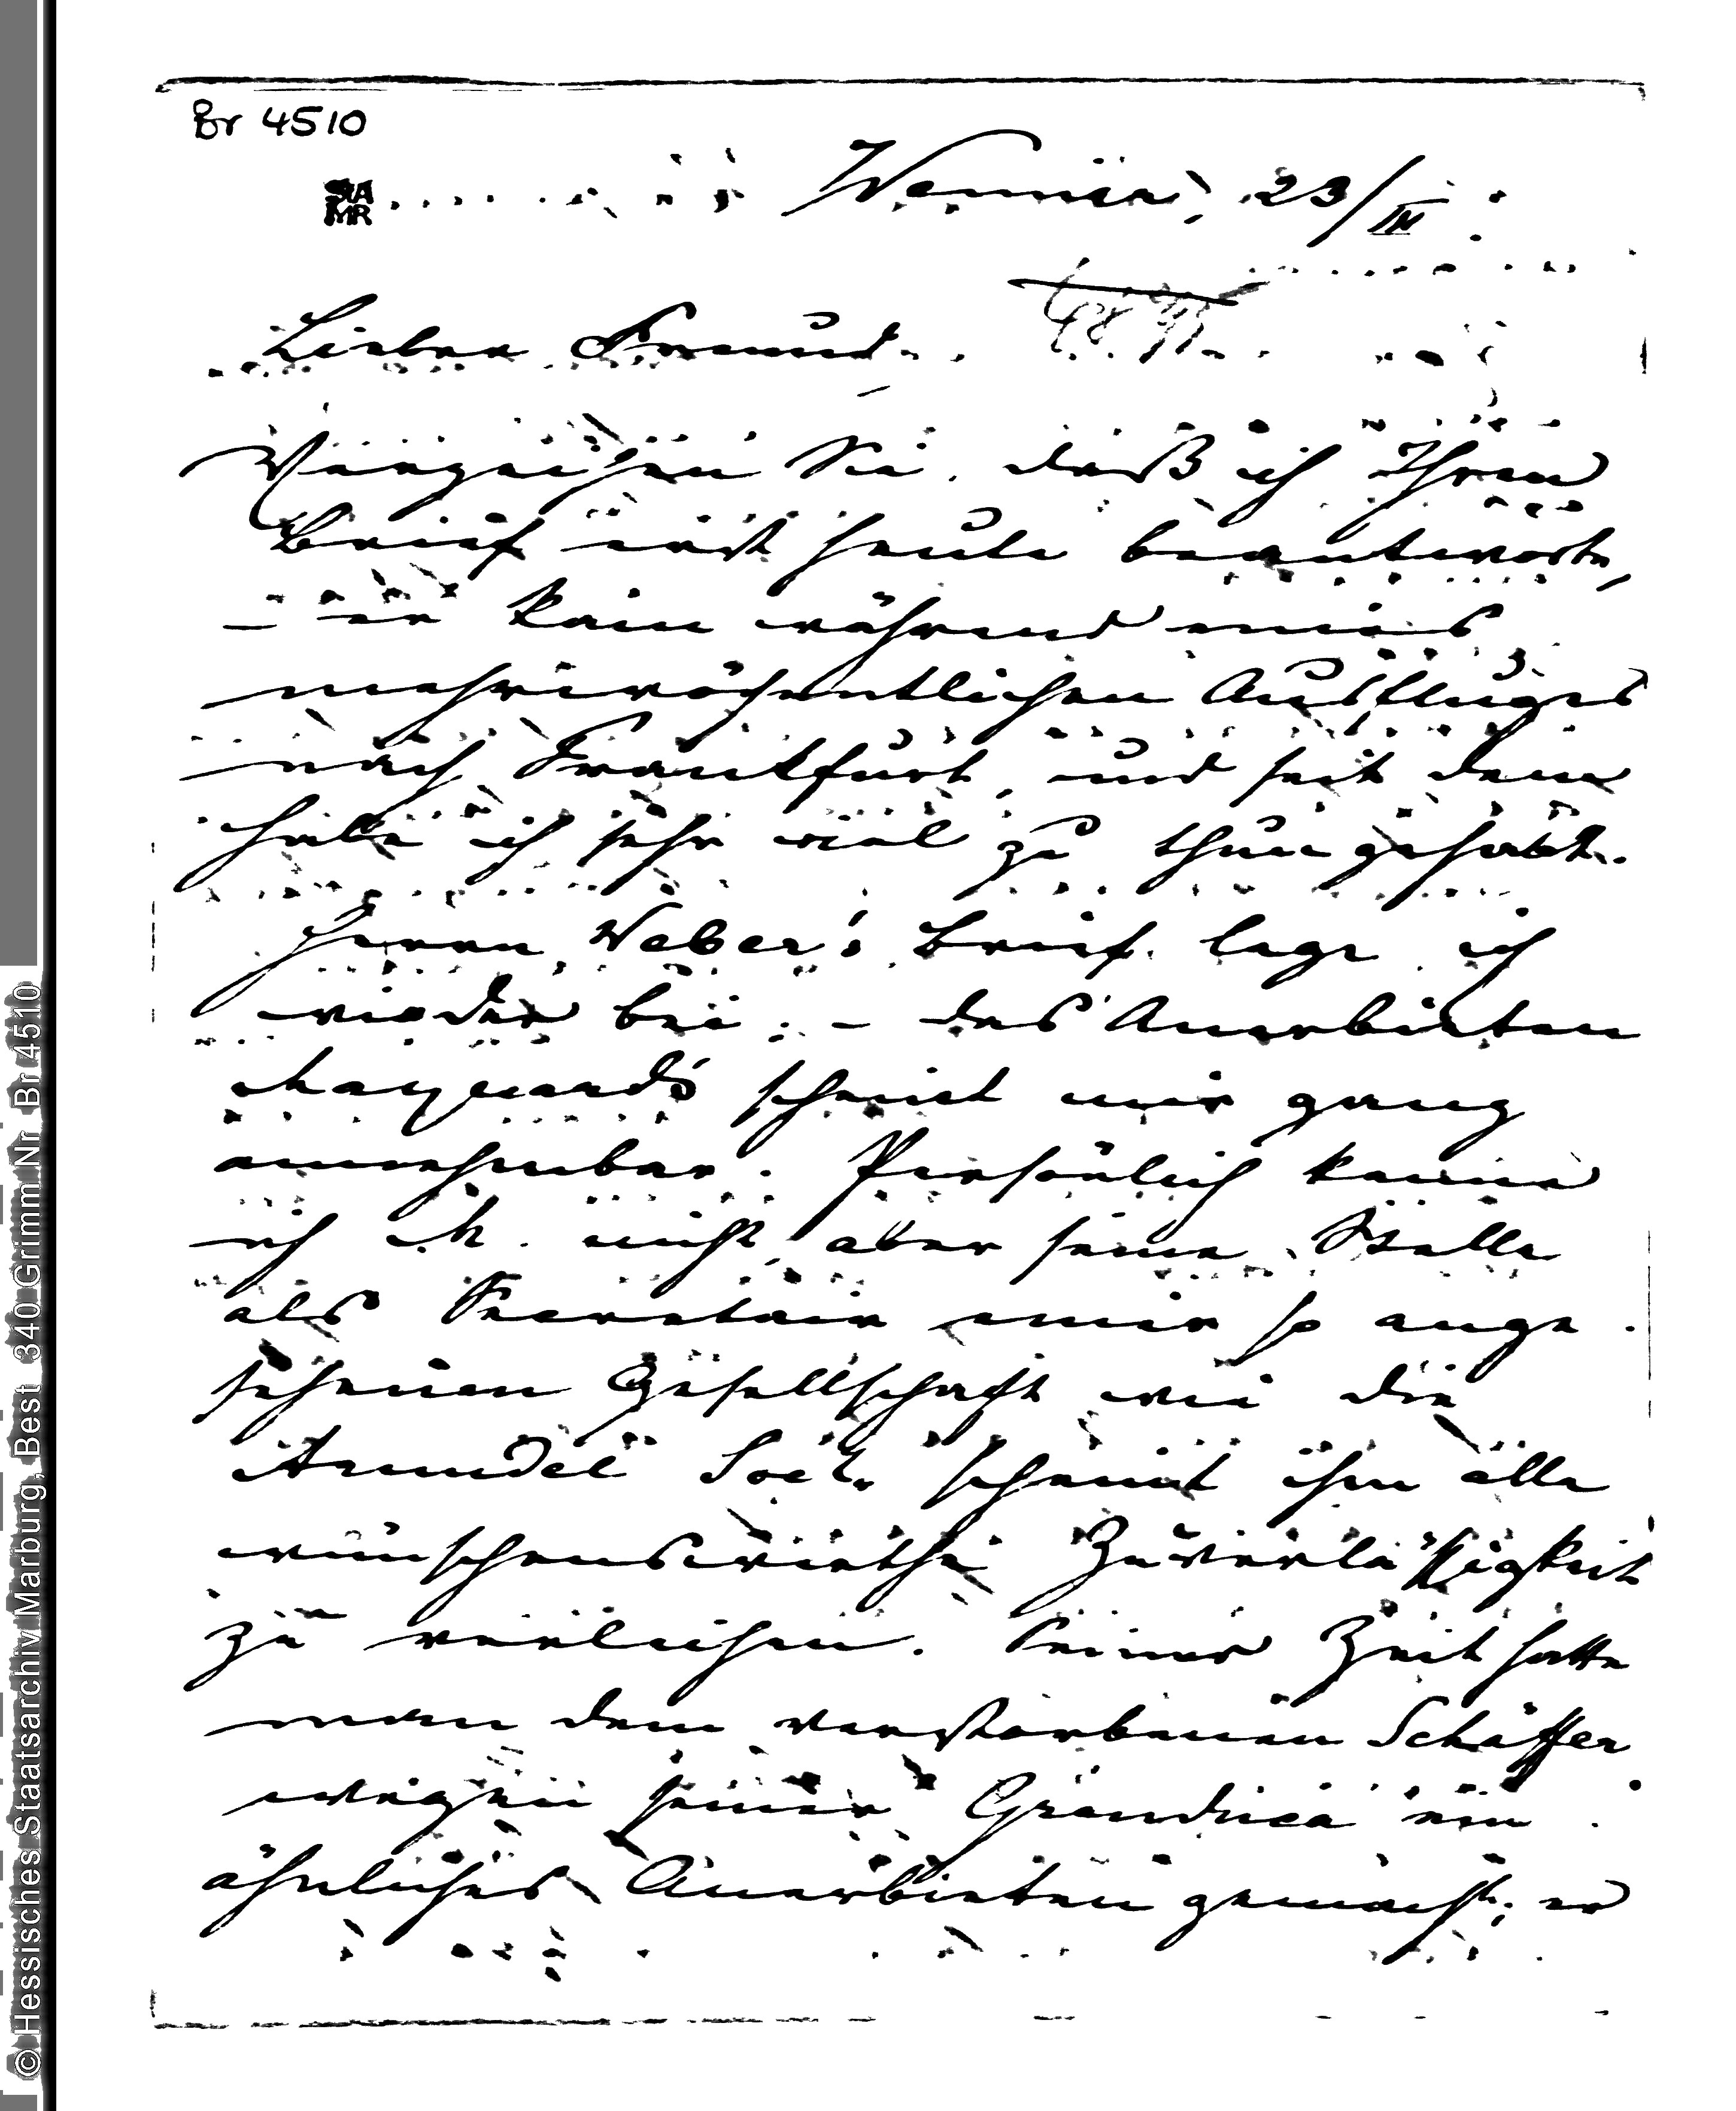 Br 4510
StA
MR
Weimar, 23/III
Lieber Freund.
Verzeihen Sie, daß ich Ihren
Brief erst heute beantworte,
– er kam während eines
mehrwöchentlichen Ausfluges
nach Frankfurt, und seit dem
habe ich sehr viel zu thun gehabt.
Herrn Weber's Brief lege ich
wieder bei. – das Anerbieten
Maynards scheint mir ganz
annehmbar. Persönlich kenne
ich M. nicht, aber seine Stelle
als Secretair einer so ange
sehenen Gesellschaft wie die
Arundel Soct. scheint ihm alle
wünschenswerthe Zuverläßigkeit
zu verleihen. Seiner Zeit hatte
man dem verstorbenen Schäffer
wegen seiner Granduca ein
ähnliches Anerbieten gemacht; er
© Hessisches Staatsarchiv Marburg, Best 340 Grimm Nr Br 4510